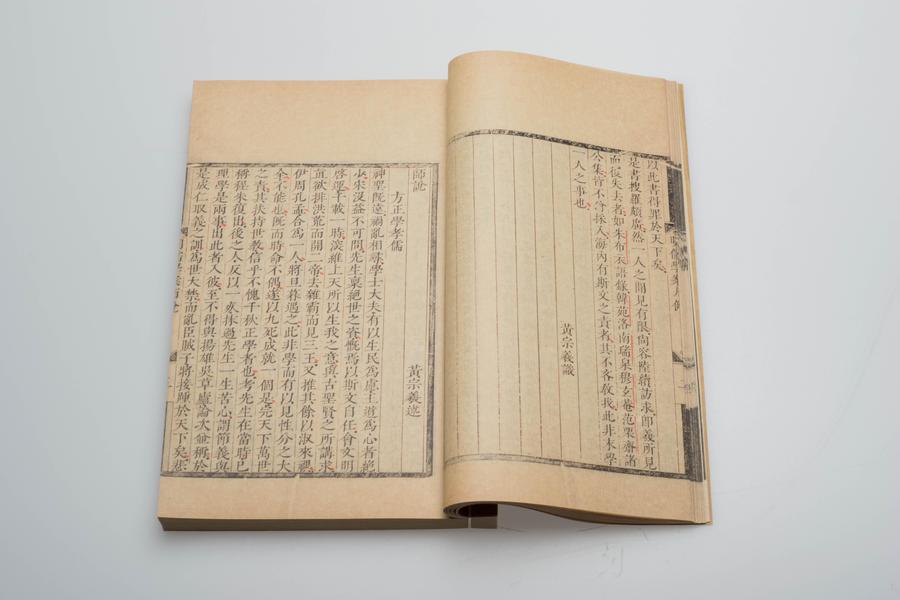 以此書得罪於天下矣
是書搜羅頗廣然一人之聞見有限尚容陸續訪求即羲所見
而復失去者如朱布衣語錄韓苑洛南瑞泉穆玄菴范栗齋諸
公集皆不曾採入海內有斯文之責者其不吝教我此非末學
一人之事也
黃宗羲識
師說 黃宗羲述
方正學孝孺
神聖旣遠禍亂相尋學士大夫有以生民爲慮王道爲心者絕
少宋沒益不可問先生稟絕世之資慨焉以斯文自任會文明
啓運千載一時深維上天所以生我之意與古聖賢之所講求
直欲排洪荒而開二帝去雜霸而見三王又推其餘以淑來禩
伊周孔孟合爲一人將旦暮遇之此非學而有以見性分之大
全不能也旣而時命不偶遂以九死成就一個是完天下萬世
之責其扶持世教信乎不愧千秋正學者也考先生在當時已
稱程朱復出後之人反以一死抹過先生一生苦心謂節義與
理學是兩事出此者入彼至不得與揚雄吳草廬論次並稱於
是成仁取義之訓爲世大禁而亂臣賊子將接踵於天下矣悲